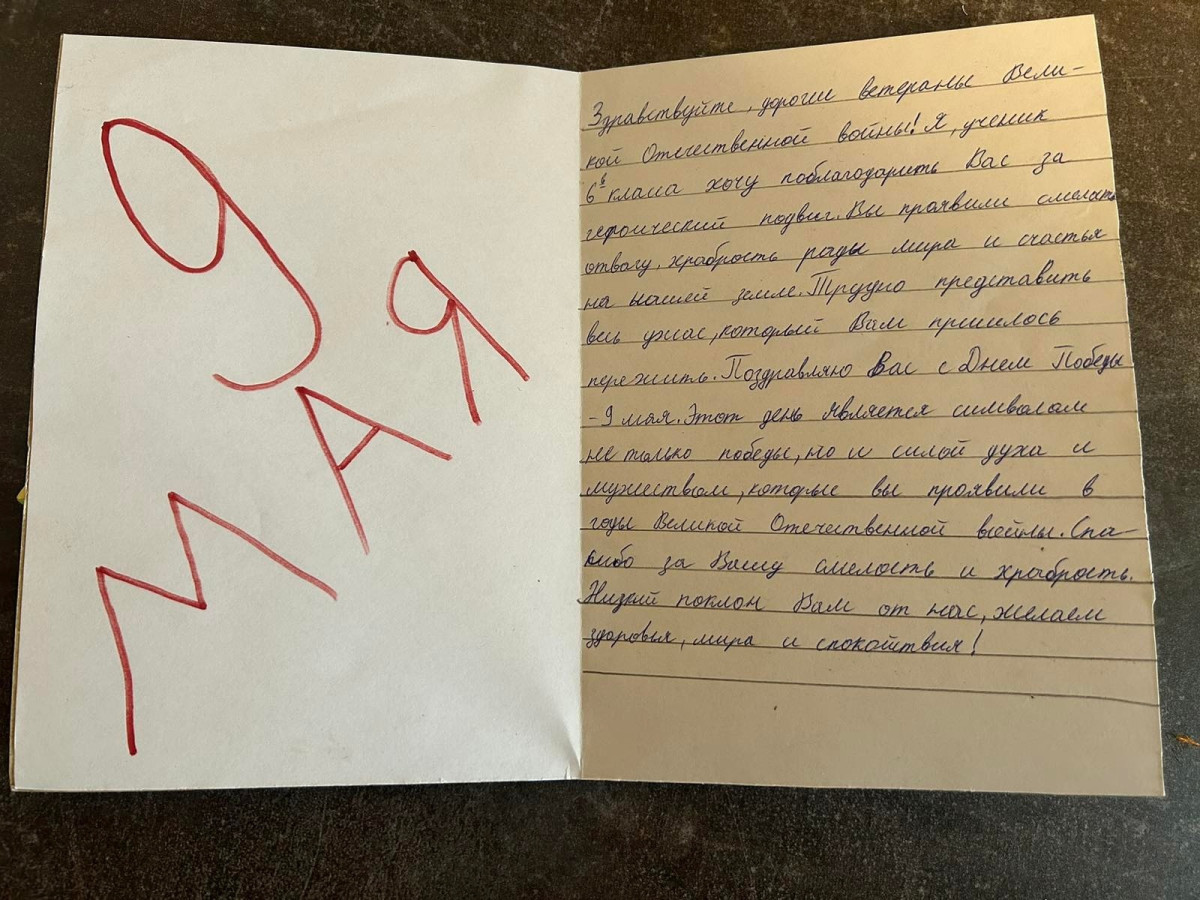 9
МАЯ
Здравствуйте, дорогие ветераны Вели-
кой Отечественной войны! Я, ученик
6в класа хочу поблагодарить Вас за
героический подвиг. Вы проявили смелость
отвагу, храбрость рады мира и счастья
на нашей земле. Трудно представить
весь ужас, который Вам пришлось
пережить. Поздравляю Вас с Днем Победы
- 9 мая. Этот день является символом
не только победы, но и силой духа и
мужеством, которые вы проявили в
годы Великой Отечественной войны. Спа-
сибо за Вашу смелость и храбрость.
Низкий поклон Вам от нас, желаем
здоровья, мира и спокойтвия!